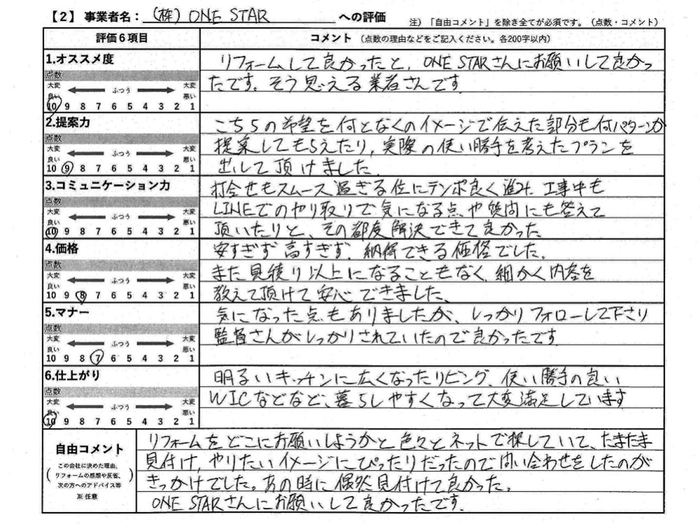 【2】事業者名：（株）ONE STAR への評価 注）「自由コメント」を除き全てが必須です。（点数・コメント）
評価6項目 コメント（点数の理由などをご記入ください。各200字以内）
1.オススメ度
点数
大変良い ふつう 大変悪い
10 9 8 7 6 5 4 3 2 1
リフォームして良かったと、ONE STARさんにお願いして良かっ
たです。そう思える業者さんです。
2.提案力
点数
大変良い ふつう 大変悪い
10 9 8 7 6 5 4 3 2 1
こちらの希望を何となくのイメージで伝えた部分も何パターンか
提案してもらえたり、実際の使い勝手を考えたプランを
出して頂けました。
3.コミュニケーション力
点数
大変良い ふつう 大変悪い
10 9 8 7 6 5 4 3 2 1
打合せもスムーズ過ぎる位にテンポ良く進み、工事中も
LINEでのやり取りで気になる点や質問にも答えて
頂いたりと、その都度解決できて良かった
4.価格
点数
大変良い ふつう 大変悪い
10 9 8 7 6 5 4 3 2 1
安すぎず高すぎず、納得できる価格でした。
また見積り以上になることもなく、細かく内容を
教えて頂けて安心できました。
5.マナー
点数
大変良い ふつう 大変悪い
10 9 8 7 6 5 4 3 2 1
気になった点もありましたが、しっかりフォローして下さり
監督さんがしっかりされていたので良かったです。
6.仕上がり
点数
大変良い ふつう 大変悪い
10 9 8 7 6 5 4 3 2 1
明るいキッチンに広くなったリビング、使い勝手の良い
WICなどなど、暮らしやすくなって大変満足しています
自由コメント
この会社に決めた理由、
リフォームの感想や反省、
次の方へのアドバイス等
※任意
リフォームをどこにお願いしようかと色々とネットで探していて、たまたま
見付け、やりたいイメージにぴったりだったので問い合わせをしたのが
きっかけでした。あの時に偶然見付けて良かった。
ONE STARさんにお願いして良かったです。